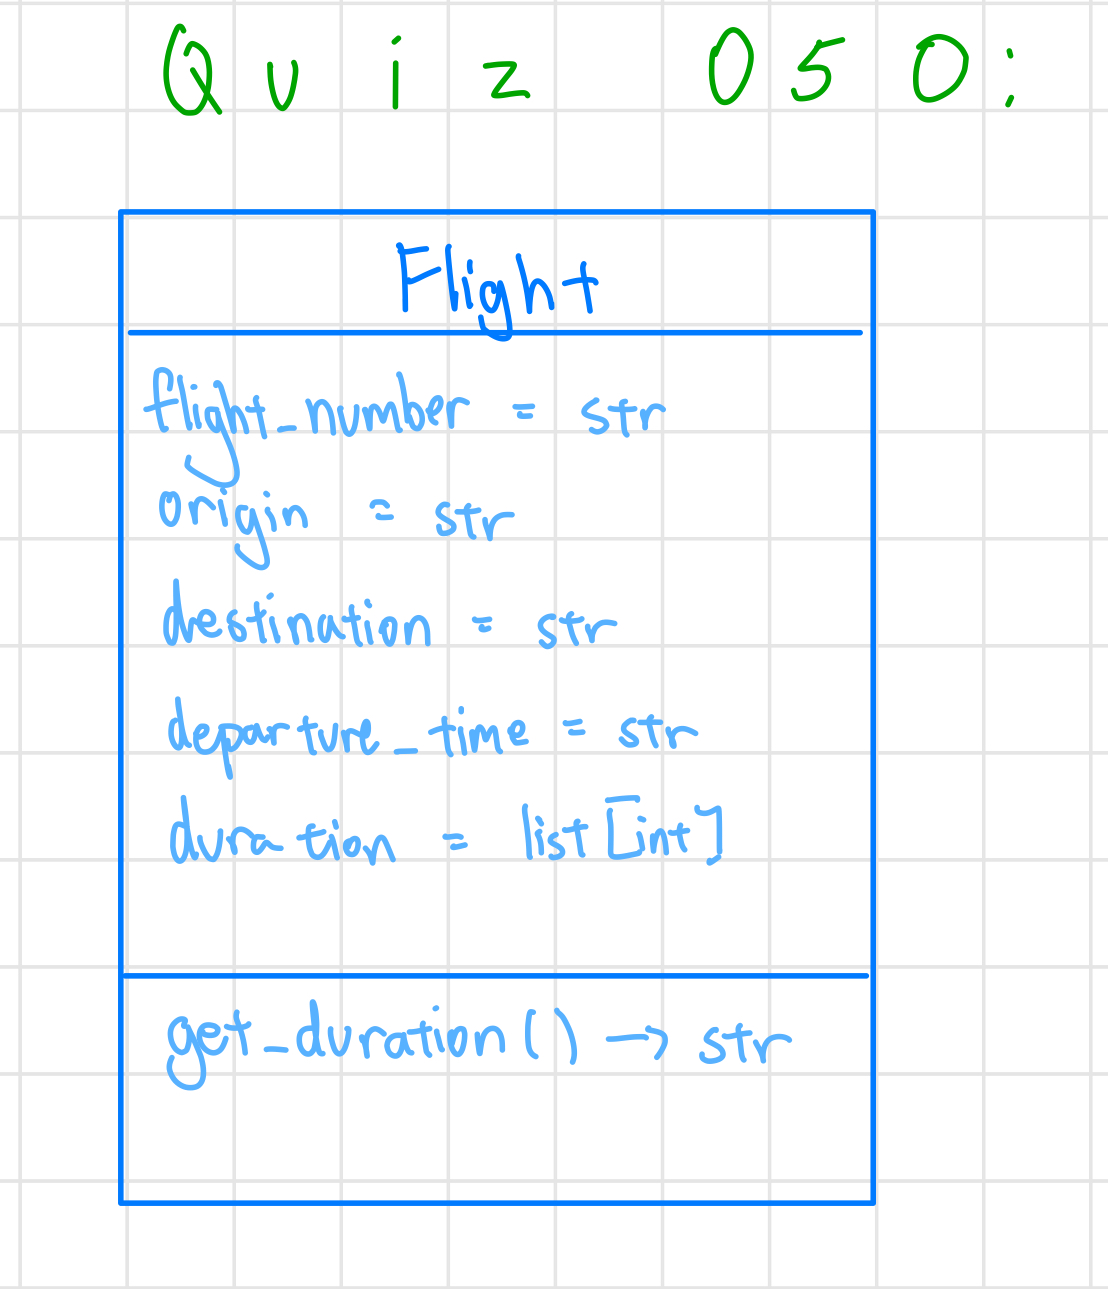 Quiz 050:
Flight
flight_number = str
origin = str
destination = str
departure_time = str
duration = list[int]
get_duration() → str